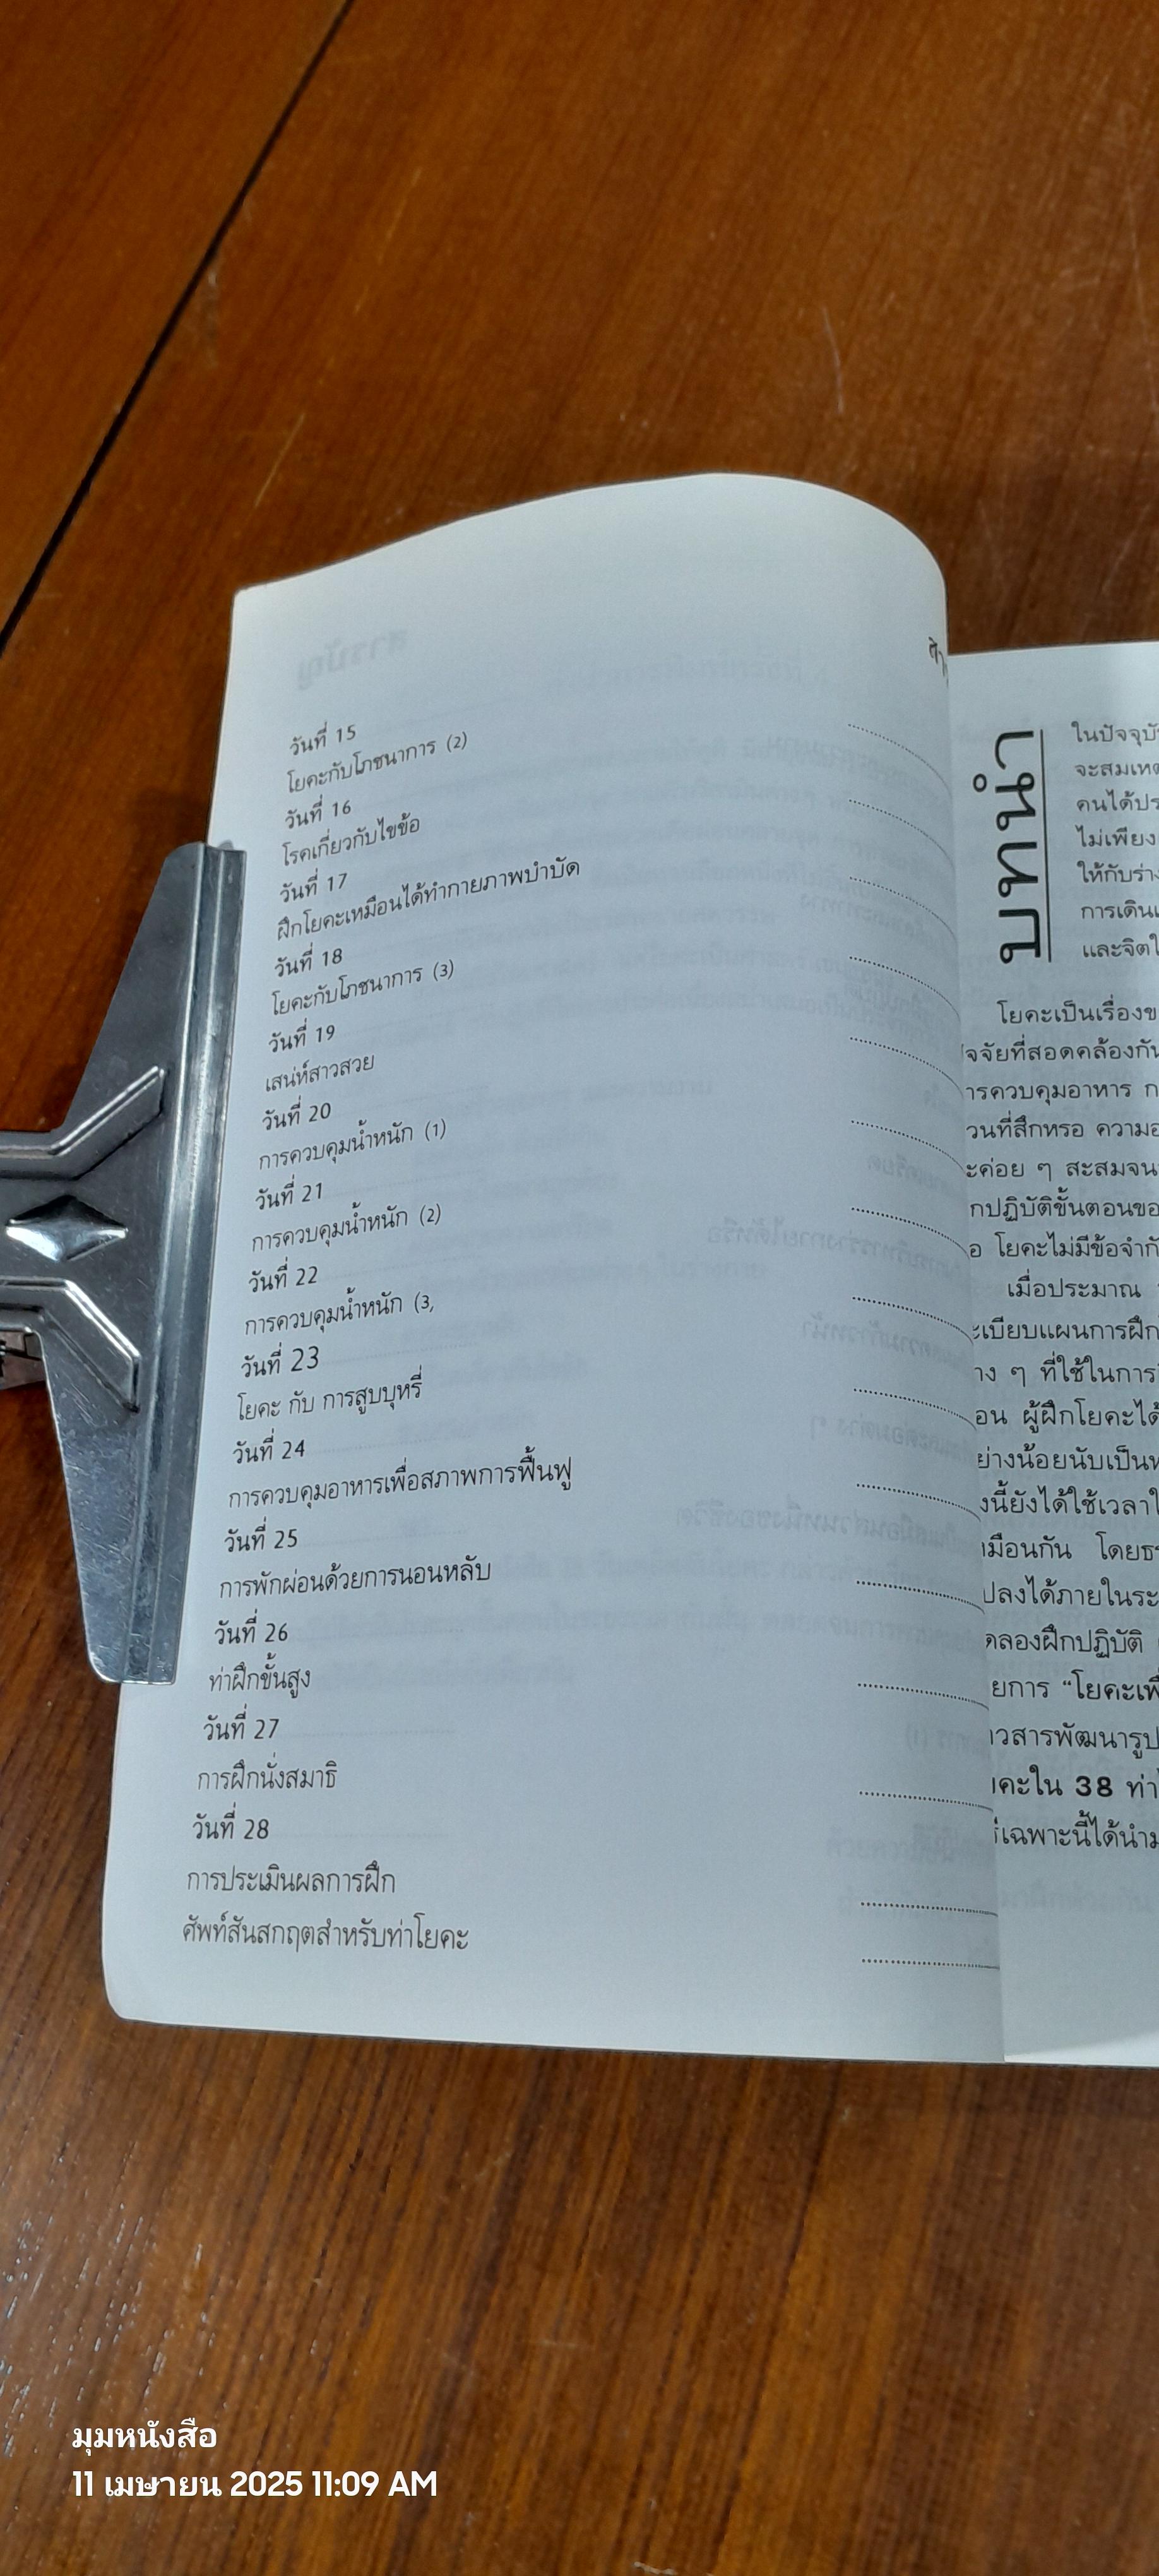 วันที่ 15
โยคะกับโภชนาการ (2)
วันที่ 16
โรคเกี่ยวกับไขข้อ
วันที่ 17
ฝึกโยคะเหมือนได้ทำกายภาพบำบัด
วันที่ 18
โยคะกับโภชนาการ (3)
วันที่ 19
เสน่ห์สาวสวย
วันที่ 20
การควบคุมน้ำหนัก (1)
วันที่ 21
การควบคุมน้ำหนัก (2)
วันที่ 22
การควบคุมน้ำหนัก (3,
วันที่ 23
โยคะ กับ การสูบบุหรี่
วันที่ 24
การควบคุมอาหารเพื่อสภาพการฟื้นฟู
วันที่ 25
การพักผ่อนด้วยการนอนหลับ
วันที่ 26
ท่าฝึกขั้นสูง
วันที่ 27
การฝึกนั่งสมาธิ
วันที่ 28
การประเมินผลการฝึก
ศัพท์สันสกฤตสำหรับท่าโยคะ
บทนำ
ในปัจจุบั
จะสมเหต
คนได้ปร
ไม่เพียง
ให้กับร่าง
การเดิน
และจิตใ
โยคะเป็นเรื่องข
จจัยที่สอดคล้องกัน
ารควบคุมอาหาร ก
วนที่สึกหรอ ความอ
ะค่อย ๆ สะสมจน
กปฏิบัติขั้นตอนขอ
อ โยคะไม่มีข้อจำกั
เมื่อประมาณ
ะเบียบแผนการฝึก
าง ๆ ที่ใช้ในการ
อน ผู้ฝึกโยคะได้
ย่างน้อยนับเป็นห
งนี้ยังได้ใช้เวลาใ
หมือนกัน โดยธร
ปลงได้ภายในระ
ดลองฝึกปฏิบัติ
ยการ “โยคะเพื่
าวสารพัฒนารูป
ยคะใน 38 ท่า
เฉพาะนี้ได้นำม
มุมหนังสือ
11 เมษายน 2025 11:09 AM